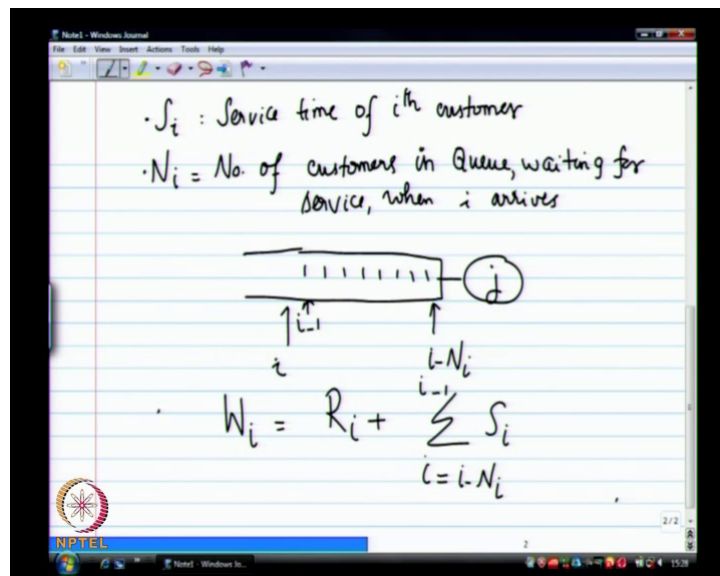 Note1 - Windows Journal
File Edit View Insert Actions Tools Help
· S_i : Service time of i^th customer
· N_i = No. of customers in Queue, waiting for
service, when i arrives
j
i-1
i
i-N_i
W_i = R_i + \sum_{i=i-N_i}^{i-1} S_i
2/2
2
NPTEL
Note1 - Windows Jo...
15:28